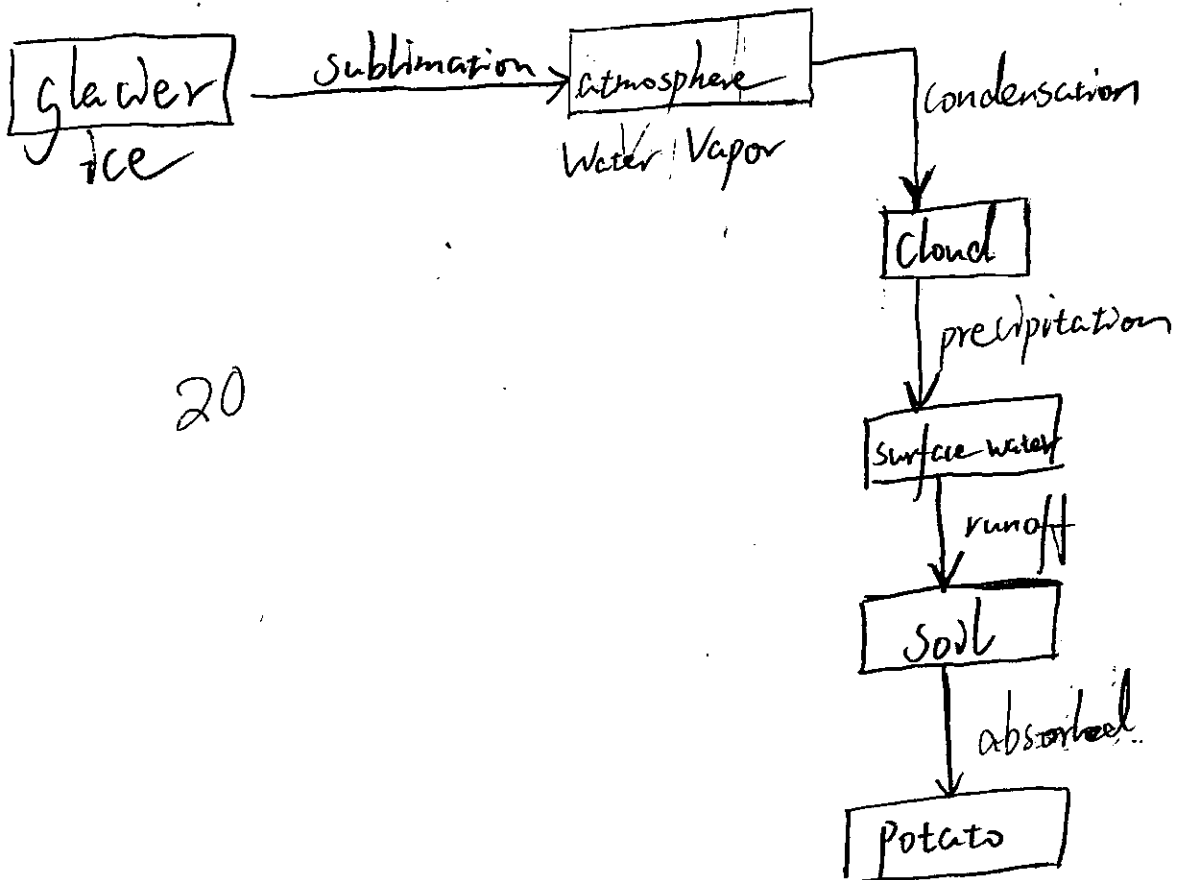 glacier
ice
sublimation
atmosphere
Water Vapor
condensation
Cloud
precipitation
surface water
20
runoff
Soil
absorbed
Potato